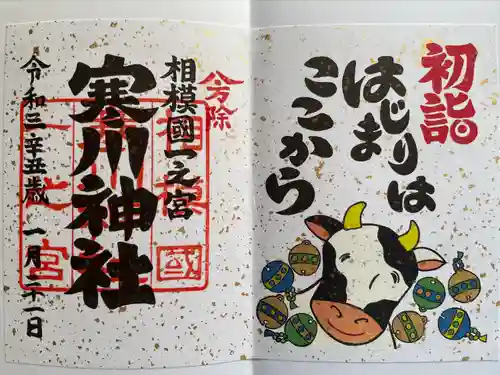 初詣
はじまりは
ここから
八方除
相模國一之宮
寒川神社
令和三辛丑歳 一月二十一日